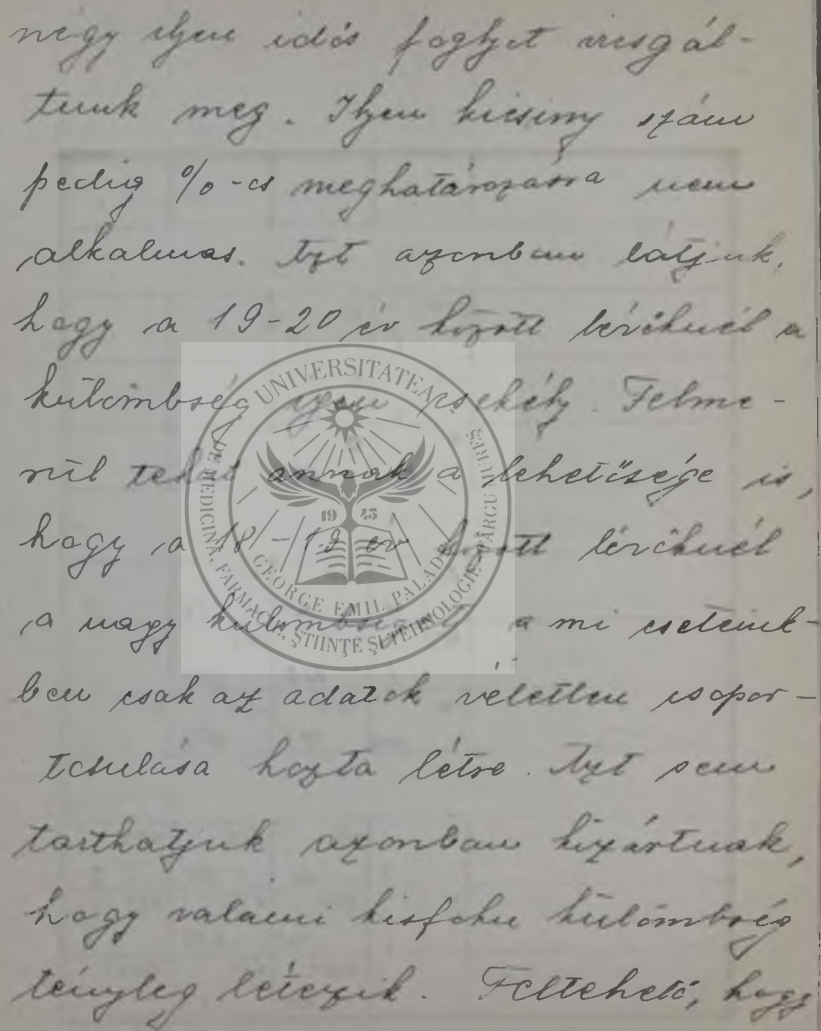 négy ilyen idős foglyot vizsgál-
tunk meg. Ilyen kicsiny szám
pedig %-os meghatározásra nem
alkalmas. Azt azonban látjuk,
hogy a 19-20 év között lévőknél a
külömbség igen csekély. Felme-
rül tehát annak a lehetősége is,
hogy a 18-19 év között lévőknél
a nagy külömbséget a mi eseteink-
ben csak az adatok véletlen csopor-
tosulása hozta létre. Azt sem
tarthatjuk azonban kizártnak,
hogy valami kisfoku külömbség
tényleg létezik. Feltehető, hogy
UNIVERSITATEA DE MEDICINĂ, FARMACIE, ȘTIINȚE ȘI TEHNOLOGIE TÂRGU MUREȘ
GEORGE EMIL PALADE
19 45